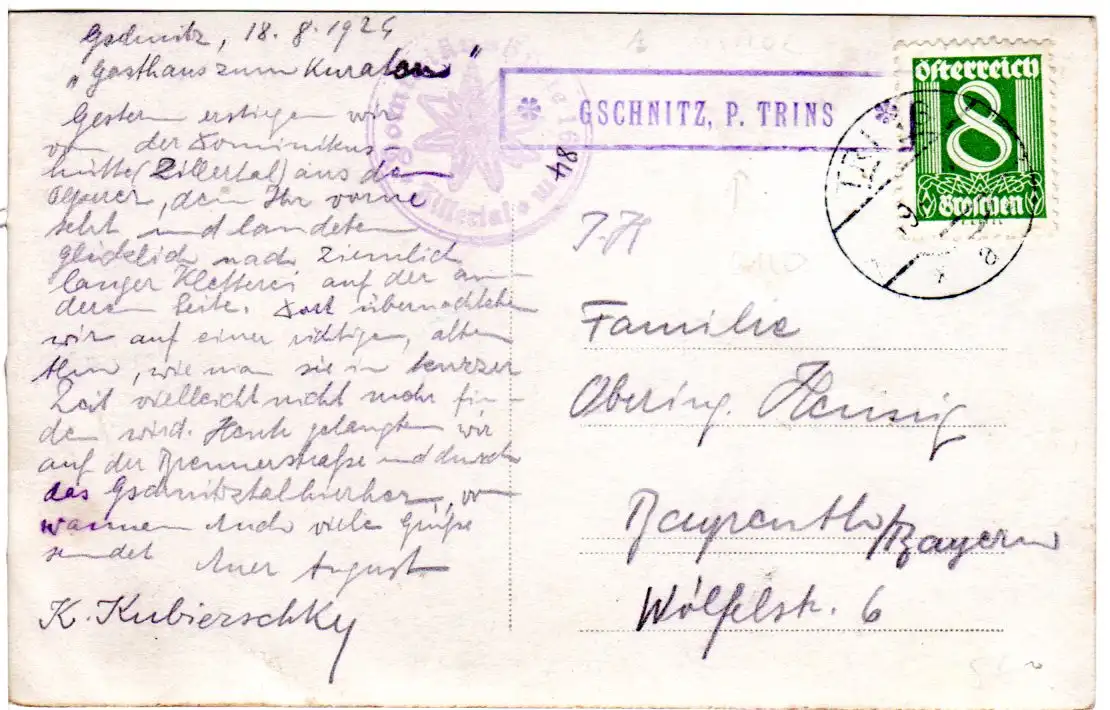 Gschnitz, 18.8.1926
"Gasthaus zum Kuraten"
Gestern erstiegen wir
von der Dominikus-
hütte (Zillertal) aus den
Olperer, den Ihr vorne
seht und landeten
glücklich nach ziemlich
langer Kletterei auf der an-
deren Seite. Dort übernachteten
wir auf einer richtigen, alten
Alm, wie man sie in kurzer
Zeit vielleicht nicht mehr fin-
den wird. Heute gelangten wir
auf der Brennerstraße und durch
das Gschnitztal hierher, von
wannen Euch viele Grüße
sendet Euer August
K. Kubierschky
Dominikushütte 16
Zillertal
GSCHNITZ, P. TRINS
84
Österreich
8
Groschen
Familie
Obering. Hennig
Bayreuth/Bayern
Wölfelstr. 6